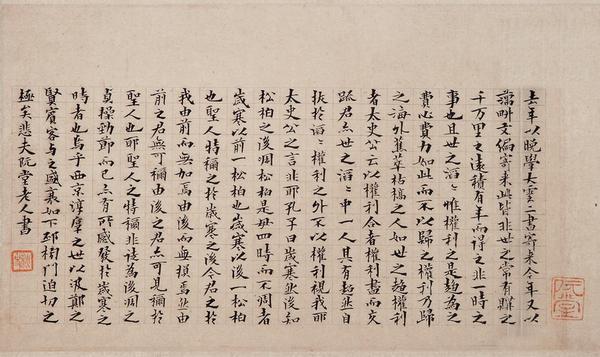 去年以晚學大雲二書寄來今年又以
藕畊文編寄來此皆非世之常有購之
千万里之遠積有年而得之非一時之
事也且世之滔〻惟權利之是趨爲之
費心費力如此而不以歸之權利乃歸
之海外蕉萃枯槁之人如世之趨權利
者太史公云以權利合者權利盡而交
踈君亦世之滔〻中一人其有超然自
拔於滔〻權利之外不以權利視我耶
太史公之言非耶孔子曰歲寒然後知
松柏之後凋松柏是毌四時而不凋者
歲寒以前一松柏也歲寒以後一松柏
也聖人特稱之於歲寒之後今君之於
我由前而無加焉由後而無損焉然由
前之君無可稱由後之君亦可見稱於
聖人也耶聖人之特稱非徒爲後凋之
貞操勁節而已亦有所感發於歲寒之
時者也烏乎西京淳厚之世以汲鄭之
賢賓客與之盛衰如下邳榜門迫切之
極矣悲夫阮堂老人書
阮堂